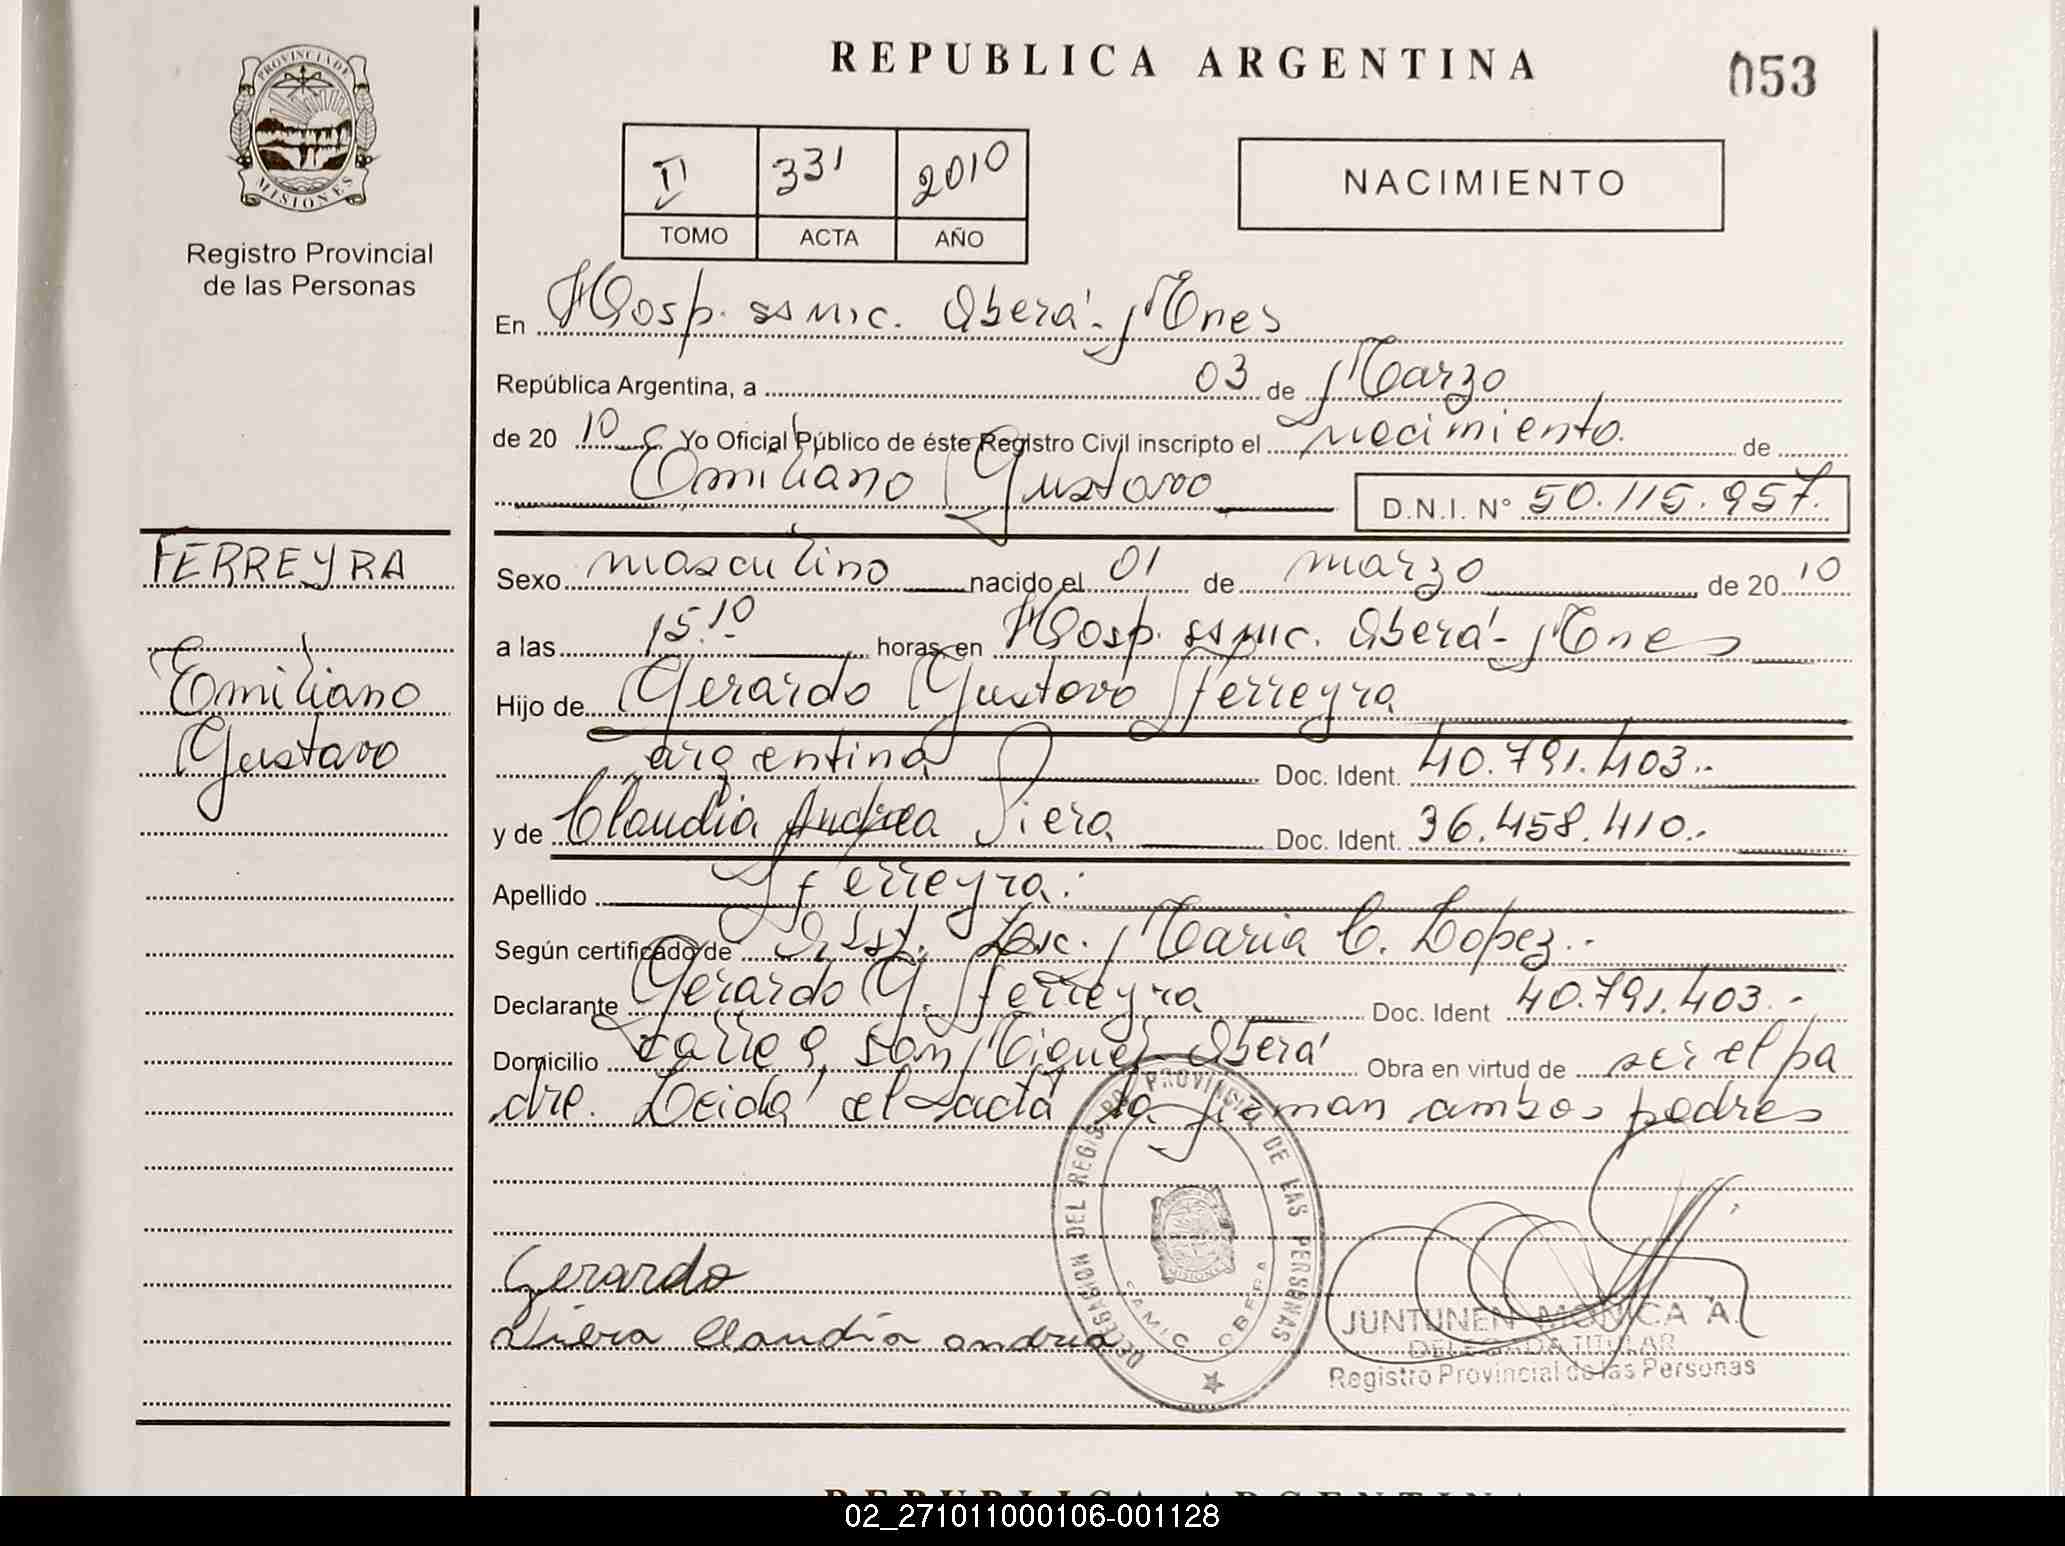 REPUBLICA ARGENTINA
053
PROVINCIA DE
MISIONES
Registro Provincial
de las Personas
II 331 2010
TOMO ACTA AÑO
NACIMIENTO
En Hosp. ssmic. Oberá - Mnes
República Argentina, a 03 de Marzo
de 20 10 Yo Oficial Público de éste Registro Civil inscripto el nacimiento. de
Emiliano Gustavo D.N.I. N° 50.115.957.
FERREYRA
Emiliano
Gustavo
Sexo masculino nacido el 01 de marzo de 20 10
a las 15.10 horas, en Hosp. ssmic. Oberá - Mnes
Hijo de Gerardo Gustavo Ferreyra
argentina Doc. Ident. 40.791.403.-
y de Claudia Andrea Piera Doc. Ident. 36.458.410.-
Apellido Ferreyra.
Según certificado de Obst. Lic. Maria C. Lopez.-
Declarante Gerardo G. Ferreyra Doc. Ident 40.791.403.-
Domicilio San Miguel Oberá Obra en virtud de ser el pa
dre. Leida el acta la firman ambos padres
DELEGACION DEL REGISTRO PROVINCIAL DE LAS PERSONAS
MISIONES
Gerardo
Claudia andrea
JUNTUNEN MONICA A.
DELEGADA TITULAR
Registro Provincial de las Personas
REPUBLICA ARGENTINA
02_271011000106-001128